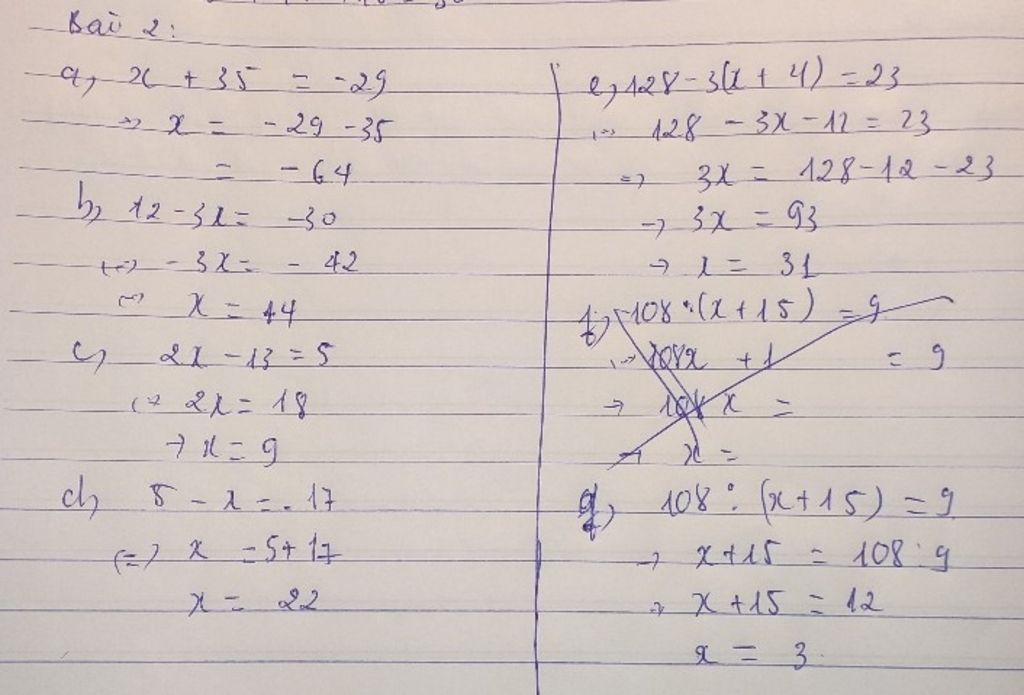 Bài 2:
a, x + 35 = -29
=> x = -29 - 35
= -64
b, 12 - 3x = -30
<=> -3x = - 42
<=> x = 14
c, 2x - 13 = 5
<=> 2x = 18
-> x = 9
d, 5 - x = -17
<=> x = 5 + 17
x = 22
e, 128 - 3(x + 4) = 23
<=> 128 - 3x - 12 = 23
=> 3x = 128 - 12 - 23
-> 3x = 93
-> x = 31
108 : (x + 15) = 9
-> 108x + 1 = 9
-> 108 x =
-> x =
108 : (x + 15) = 9
-> x + 15 = 108 : 9
-> x + 15 = 12
x = 3